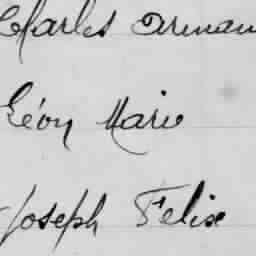 Charles Arman
Léon Marie
Joseph Felix